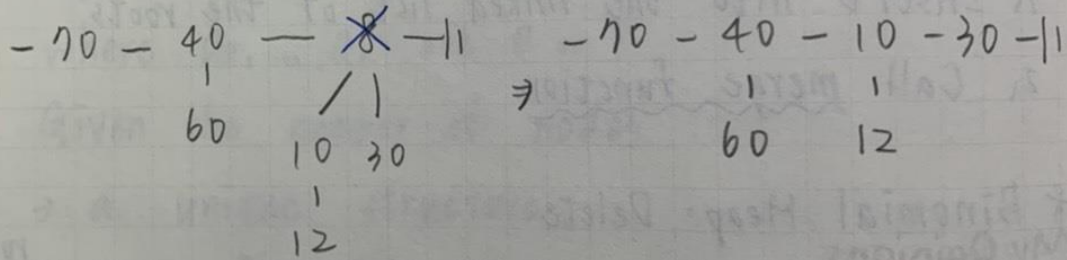 -70 - 40 — 8 -||
60
10 30
12
⇒ -70 - 40 - 10 - 30 -||
60 12